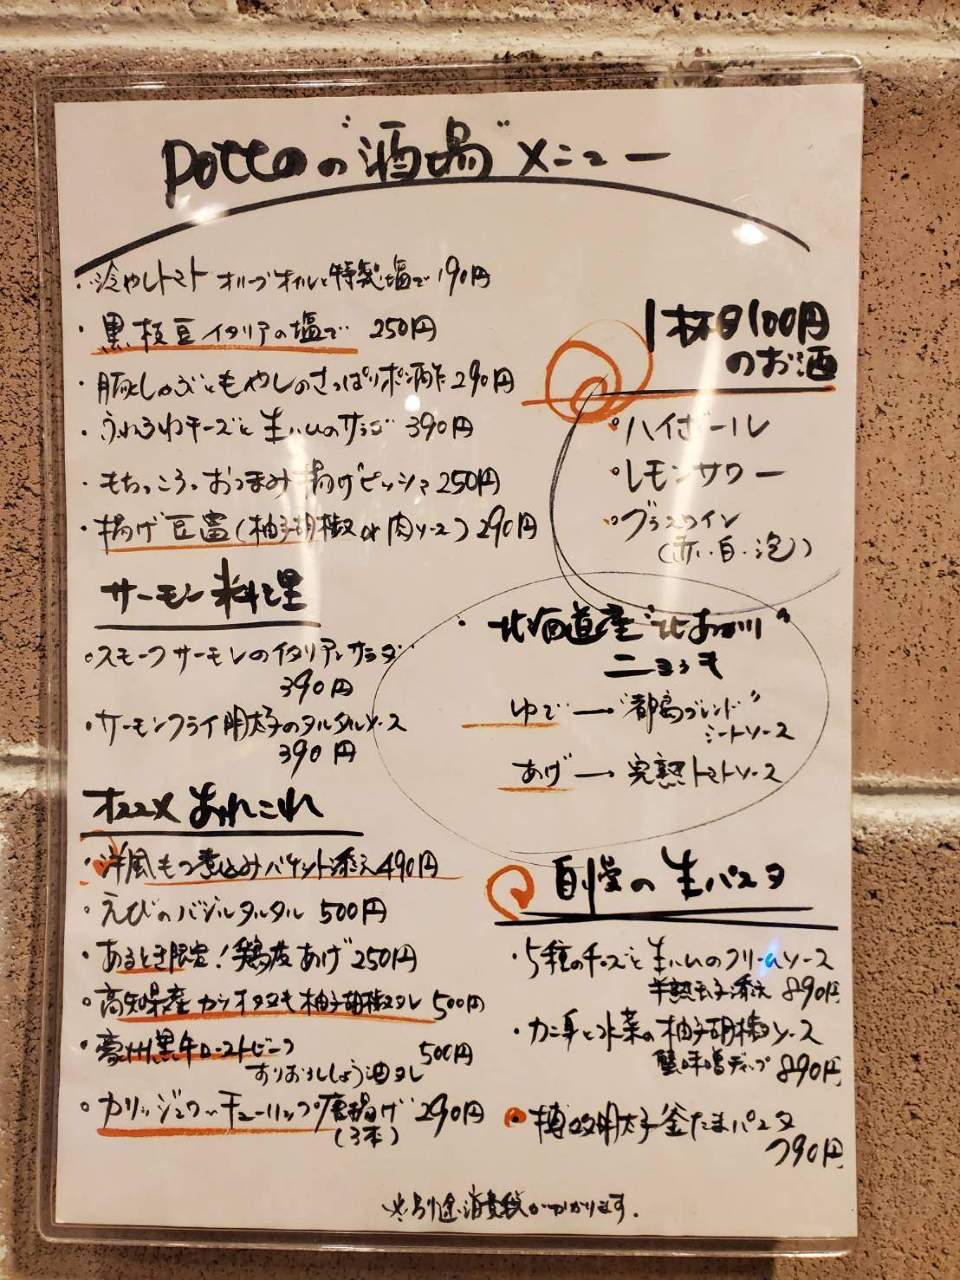 pottoの"酒場"メニュー
・冷やしトマト オリーブオイルと特製塩で 190円
・黒枝豆イタリアの塩で 250円
・豚しゃぶともやしのさっぱりポン酢 290円
・ふわふわチーズと生ハムのサラダ 390円
・もちっころっおつまみ揚げピッツァ 250円
・揚げ豆富(柚子胡椒 or 肉ソース) 290円
サーモン料理
・スモークサーモンのイタリアンサラダ
390円
・サーモンフライ明太子のタルタルソース
390円
オススメあれこれ
・洋風もつ煮込みバケット添え 490円
・えびのバジルタルタル 500円
・あるとき限定!鶏皮あげ 250円
・高知県産カツオタタキ柚子胡椒タレ 500円
・豪州黒牛ローストビーフ 500円
すりおろししょう油タレ
・カリッジュワ〜チューリップ唐揚げ 290円
(3本)
1杯100円
のお酒
・ハイボール
・レモンサワー
・グラスワイン
(赤・白・泡)
・北海道産"北あかり"
ニョッキ
ゆで→"都島ブレンド"
ミートソース
あげ→完熟トマトソース
自慢の生パスタ
・5種のチーズと生ハムのクリームソース
半熟玉子添え 890円
・カニ身と水菜の柚子胡椒ソース
蟹味噌ディップ 890円
・博多明太子釜たまパスタ
790円
※別途消費税がかかります。